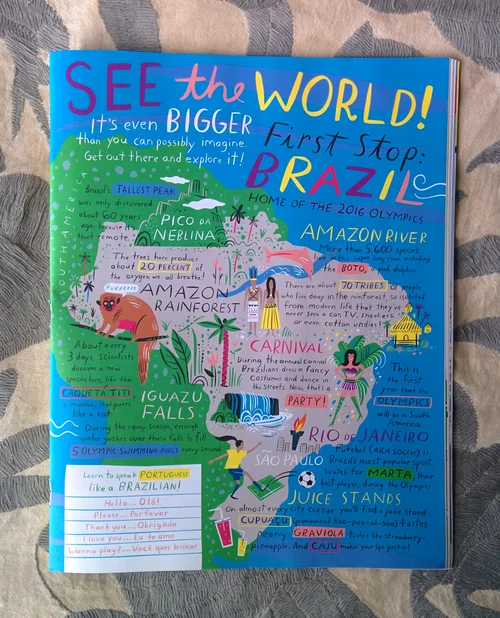 SEE the WORLD!
It's even BIGGER
than you can possibly imagine.
Get out there and explore it!
First Stop:
BRAZIL
HOME OF THE 2016 OLYMPICS
SOUTH AMERICA
Brazil's TALLEST PEAK
was only discovered
about 60 years
ago, because it's
that remote.
PICO DA
NEBLINA
AMAZON RIVER
More than 5,600 species
live in this super long river, including
the BOTO, a pink dolphin.
The trees here produce
about 20 PERCENT of
the oxygen we all breathe!
AMAZON
RAINFOREST
There are about 70 TRIBES of people
who live deep in the rainforest, so isolated
from modern life that they've
never seen a car, TV, sneakers,
or even cotton undies!
About every
3 days, Scientists
discover a new
species here, like the
CAQUETA TITI
a monkey that purrs
like a cat.
CARNIVAL
During the annual Carnival,
Brazilians dress in fancy
Costumes and dance in
the Streets. Now, that's a
PARTY!
This is
the first
year that the
OLYMPICS
will be in South
America.
IGUAZU
FALLS
During the rainy season, enough
water gushes over these falls to fill
5 OLYMPIC SWIMMING POOLS every second.
RIO DE JANEIRO
SÃO PAULO
Futebol (AKA soccer) is
Brazil's most popular sport.
Watch for MARTA, their
best player, during the Olympics.
JUICE STANDS
On almost every city corner you'll find a juice stand.
CUPUAÇU (pronounced Koo-poo-ah-soo) tastes
pear-y. GRAVIOLA tastes like strawberry-
pineapple. And CAJU makes your lips pucker!
Learn to speak PORTUGUESE
like a BRAZILIAN!
Hello... Olá!
Please... Por favor
Thank you... Obrigada
I love you... Eu te amo
Wanna play?... Você quer brincar